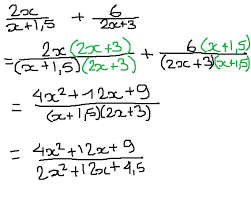 2x/(x+1,5) + 6/(2x+3)
= 2x(2x+3)/((x+1,5)(2x+3)) + 6(x+1,5)/((2x+3)(x+1,5))
= (4x²+12x+9)/((x+1,5)(2x+3))
= (4x²+12x+9)/(2x²+12x+4,5)